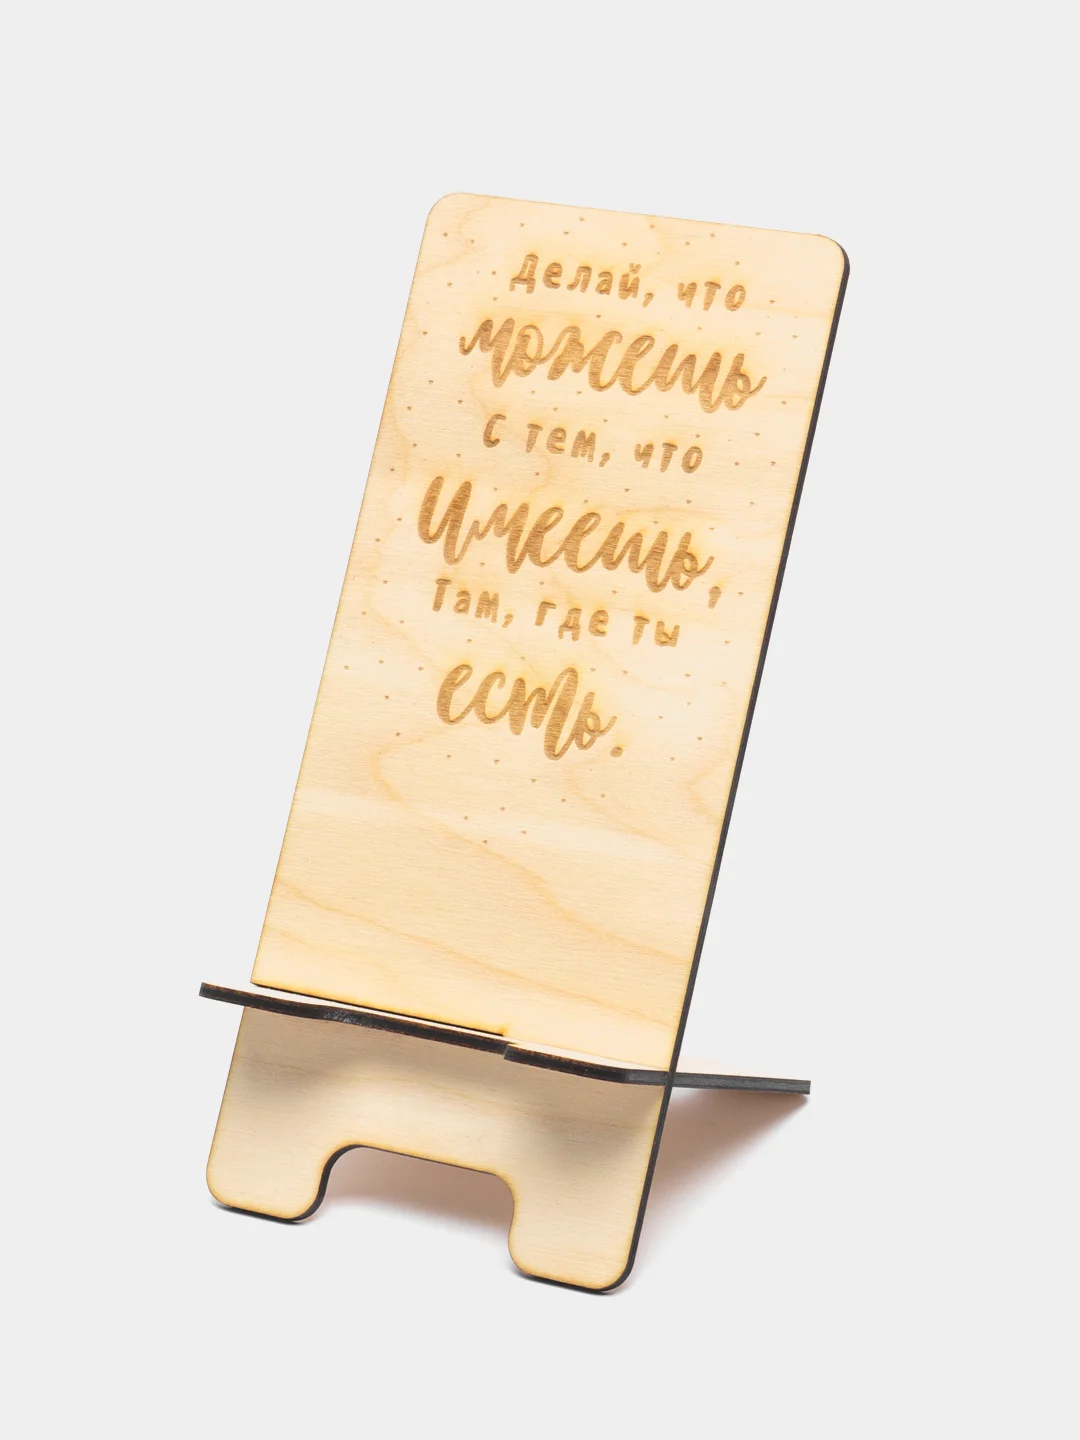 Делай, что
можешь
С тем, что
Имеешь,
Там, где ты
есть.